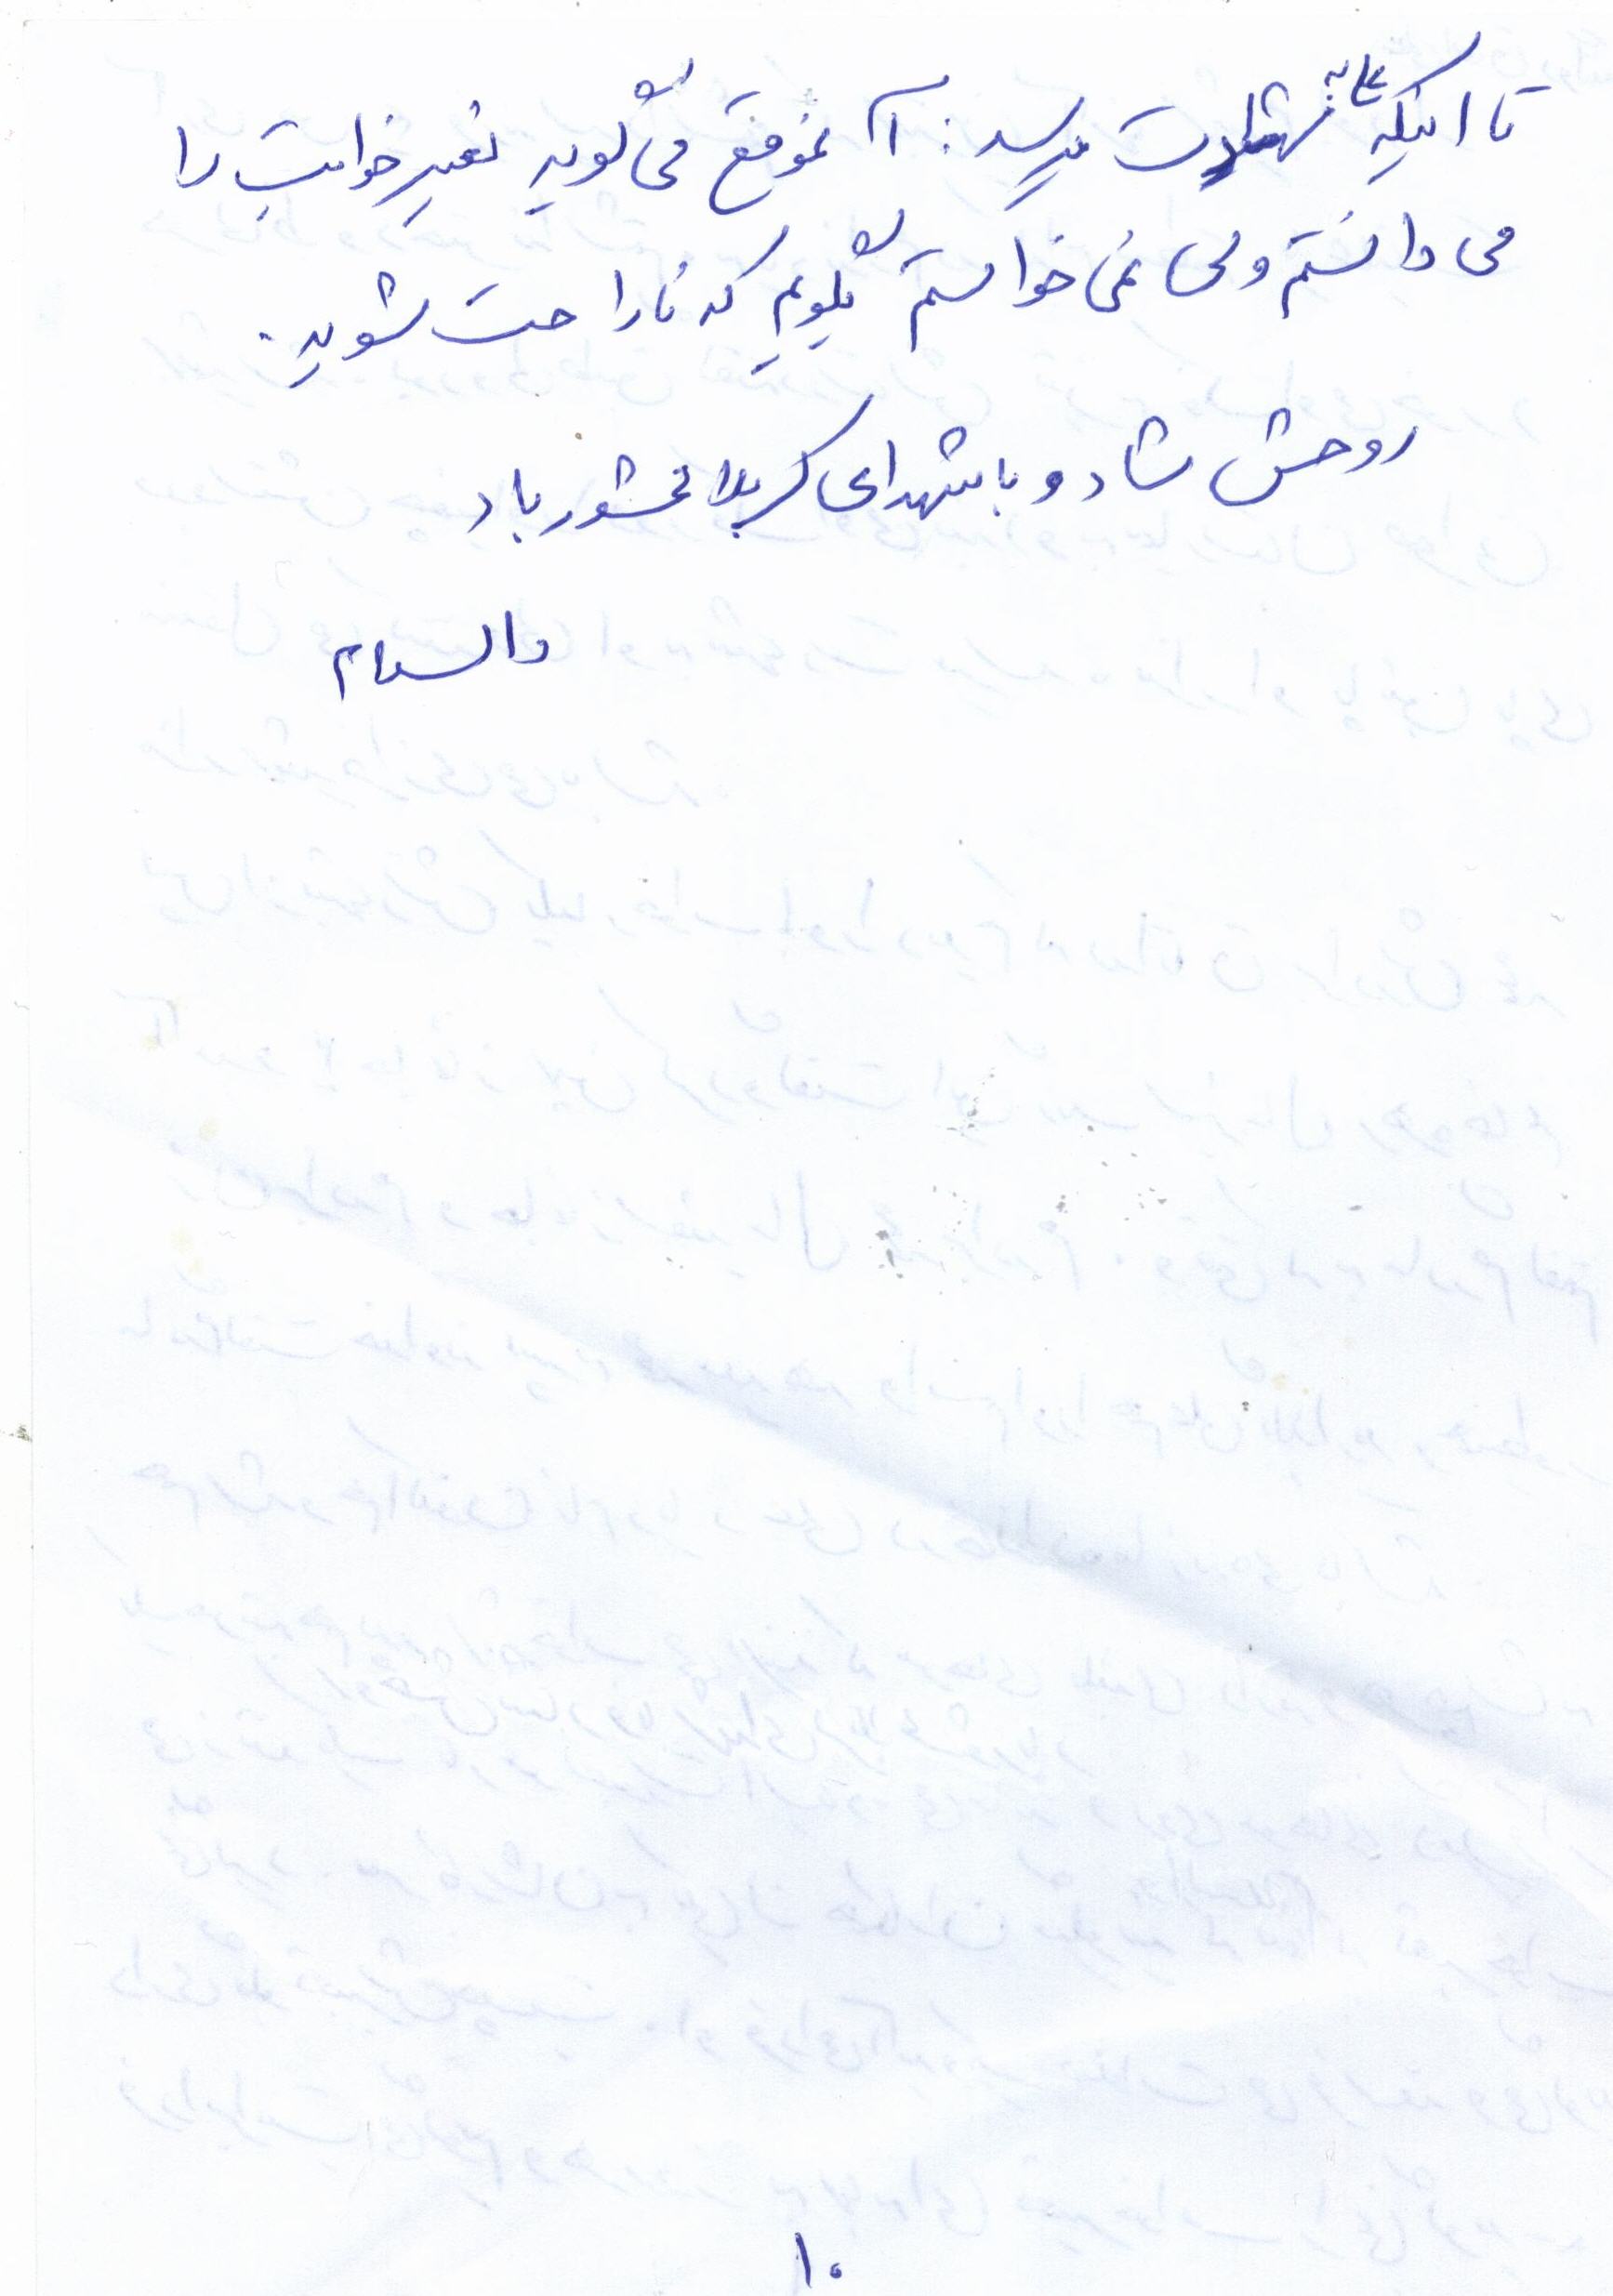 تا اینکه علی به شهادت میرسد: آنموقع می گوید تعبیر خوابت را
می دانستم ولی نمی خواستم بگویم که ناراحت شوید.
روحش شاد و با شهدای کربلا محشور باد
والسلام
۱۰